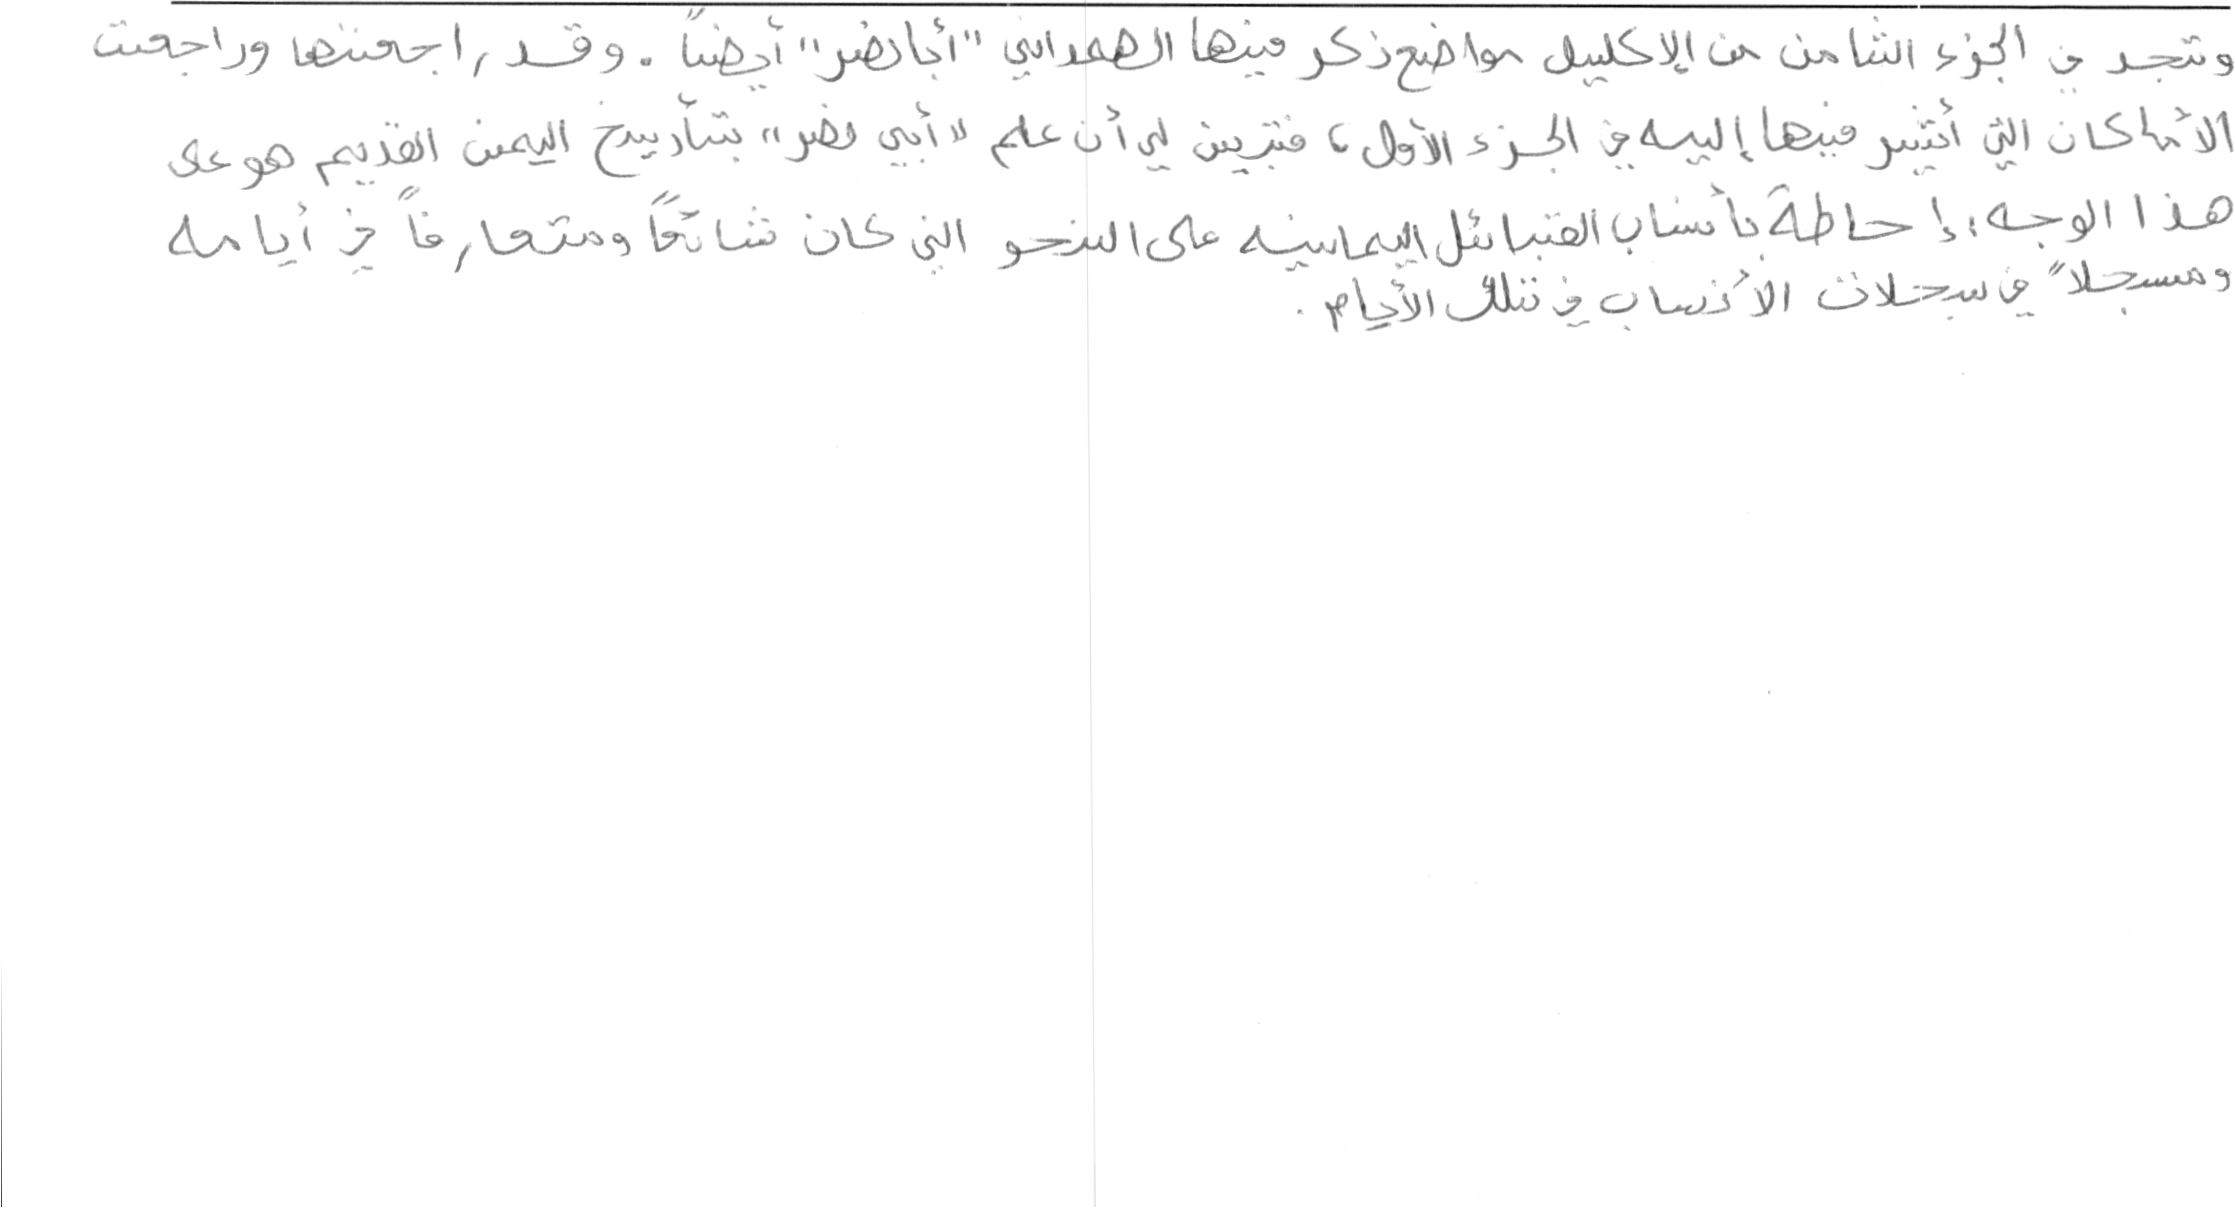 وتجد في الجزء الثامن من الإكليل مواضع ذكر فيها الهمداني "أبا نصر" أيضاً. وقد راجعتها وراجعت
الأماكن التي أشير فيها إليه في الجزء الأول، فتبين لي أن علم "أبي نصر" بتأريخ اليمن القديم هو على
هذا الوجه: إحاطة بأنساب القبائل اليمانيه على النحو التي كان شائعاً ومتعارفاً في أيامه
ومسجلاً في سجلات الأنساب في تلك الأيام.